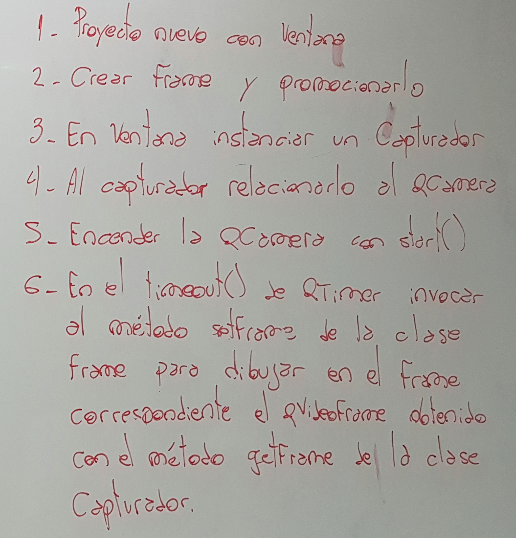 1- Proyecto nuevo con Ventana
2- Crear Frame y promocionarlo
3- En Ventana instanciar un Capturador
4- Al capturador relacionarlo al QCamera
5- Encender la QCamera con start()
6- En el timeout() de QTimer invocar
al método setFrame de la clase
Frame para dibujar en el Frame
correspondiente el QVideoFrame obtenido
con el método getFrame de la clase
Capturador.